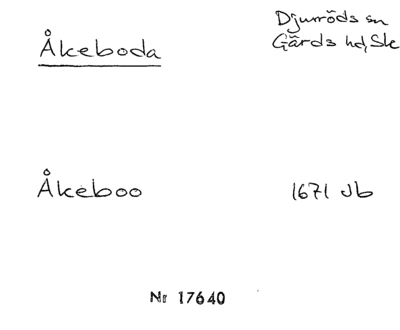 Åkeboda
Djurröds sn
Gärds hd, Sk
Åkeboo
1671 Jb
Nr 17640